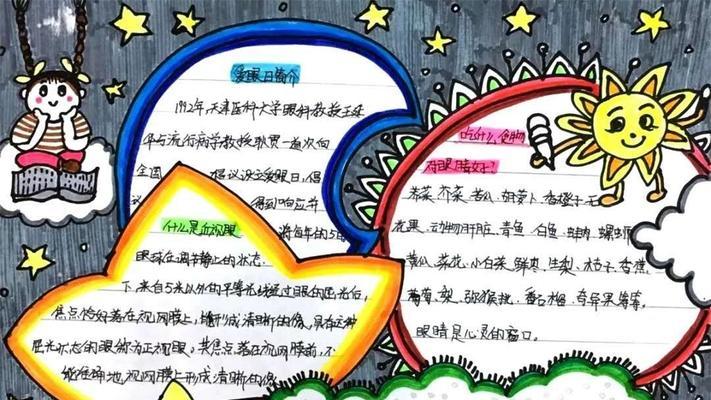 爱眼日简介
1992年,天津医科大学眼科教授王延
华与流行病学教授耿贯一首次向
全国 倡议设立爱眼日,倡
议 得到响应并
将每年的5
什么是近视眼
眼球在调节静止的状态
下,来自5米以外的平等光线经过眼的屈光后,
焦点恰好落在视网膜上,能形成清晰的像,具有这种
屈光状态的眼称为正视眼。共焦点,落在视网膜前,不
能准确地视网膜上形成清晰的像
吃什么食物
对眼睛好?
荠菜、芥菜、黄瓜、胡萝卜、香橙子、无
花果、动物肝脏、青鱼、白鱼、
黄瓜、菜花、小白菜、鲜枣、生梨、桔子、香蕉、
葡萄、梨、弥猴挑、番石榴、奇异果等等。
眼睛是心灵的窗口。